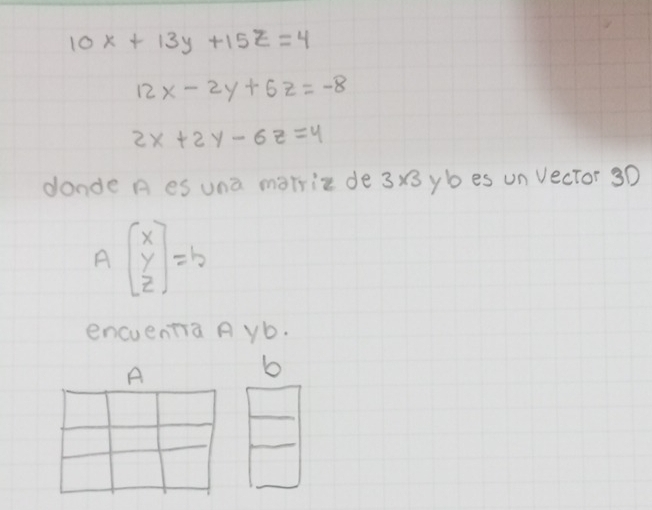 10x + 13y + 15z = 4
12x - 2y + 6z = -8
2x + 2y - 6z = 4
donde A es una matriz de 3x3 y b es un vector 3D
A [x y z] = b
encuentra A y b.
A b